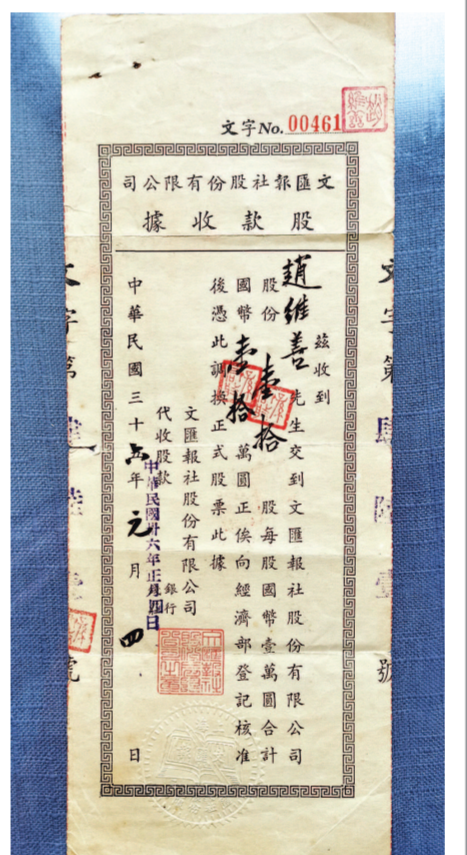 文字No. 00461
文匯報社股份有限公司
股款收據
文字第肆陸壹號
茲收到
趙維善先生交到文匯報社股份有限公司
股份壹拾股每股國幣壹萬圓合計
國幣壹拾萬圓正俟向經濟部登記核准
後憑此調換正式股票此據
文匯報社股份有限公司
代收股款銀行
中華民國卅六年正月四日
中華民國三十六年元月四日
文字第肆陸壹號